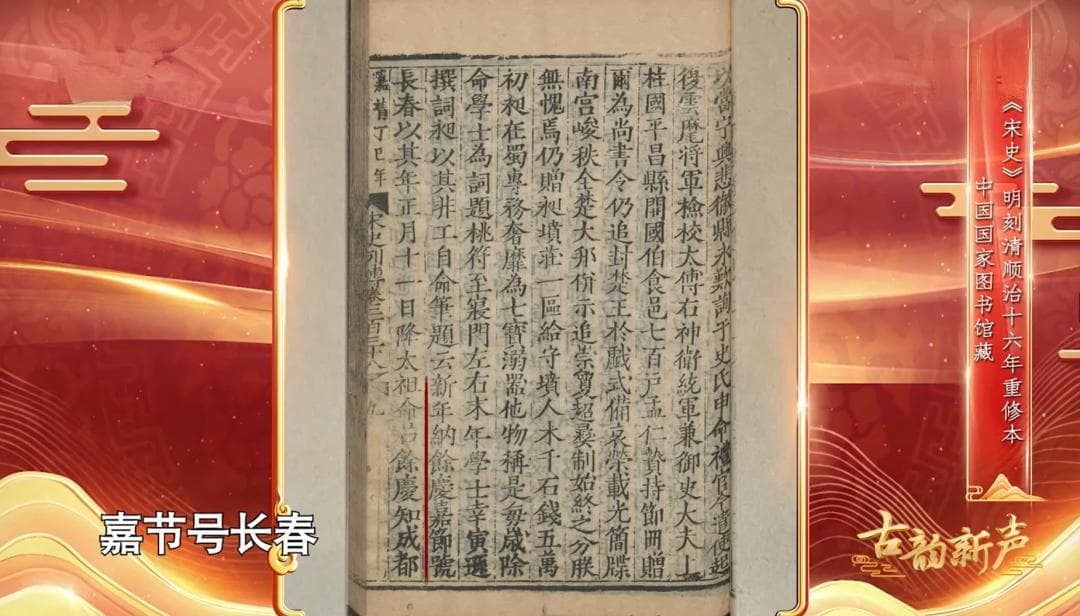 以當宁興悲徹縣永歎詢于史氏申命禮官今遣使起
復雲麾將軍檢校太傅右神衛統軍兼御史大夫上
柱國平昌縣開國伯食邑七百戶孟仁贄持節冊贈
爾為尚書令仍追封楚王於戲式備哀榮載光簡牒
南宮峻秩全楚大邦併示追崇實超彝制始終之分朕
無愧焉仍贈昶墳莊一區給守墳人米千石錢五萬
初昶在蜀專務奢靡為七寶溺器他物稱是每歲除
命學士為詞題桃符至寢門左右末年學士幸寅遜
撰詞昶以其非工自命筆題云新年納餘慶嘉節號
長春以其年正月十一日降太祖命呂餘慶知成都
嘉靖丁巳年
宋史列傳卷
《宋史》明刻清顺治十六年重修本
中国国家图书馆藏
嘉节号长春
古韵新声